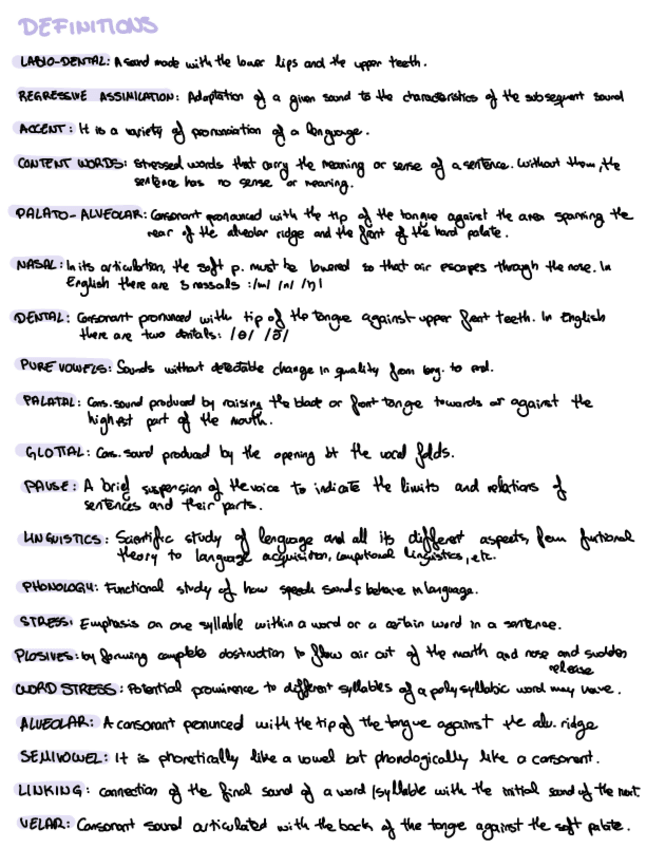 DEFINITIONS
LABIO-DENTAL: A sound made with the lower lips and the upper teeth.
REGRESSIVE ASSIMILATION: Adaptation of a given sound to the characteristics of the subsequent sound
ACCENT: It is a variety of pronunciation of a language.
CONTENT WORDS: Stressed words that carry the meaning or sense of a sentence. Without them, the
sentence has no sense or meaning.
PALATO-ALVEOLAR: Consonant pronounced with the tip of the tongue against the area spanning the
rear of the alveolar ridge and the front of the hard palate.
NASAL: In its articulation, the soft p. must be lowered so that air escapes through the nose. In
English there are 3 nassals: /m/ /n/ /ŋ/
DENTAL: Consonant pronunced with tip of the tongue against upper front teeth. In English
there are two dentals: /θ/ /ð/
PURE VOWELS: Sounds without detectable change in quality from beg. to end.
PALATAL: Cons. sound produced by raising the blade or front tongue towards or against the
highest part of the mouth.
GLOTTAL: Cons. sound produced by the opening bt the vocal folds.
PAUSE: A brief suspension of the voice to indicate the limits and relations of
sentences and their parts.
LINGUISTICS: Scientific study of language and all its different aspects, from functional
theory to language acquisition, linguistics, etc.
PHONOLOGY: Functional study of how speech sounds behave in language.
STRESS: Emphasis on one syllable within a word or a certain word in a sentence.
PLOSIVES: by forming complete obstruction to flow air out of the mouth and nose and sudden
release
WORD STRESS: Potential prominence to different syllables of a polysyllabic word may have.
ALVEOLAR: A consonant pronunced with the tip of the tongue against the alv. ridge
SEMIVOWEL: It is phonetically like a vowel but phonologically like a consonant.
LINKING: connection of the final sound of a word/syllable with the initial sound of the next
VELAR: Consonant sound articulated with the back of the tongue against the soft palate.